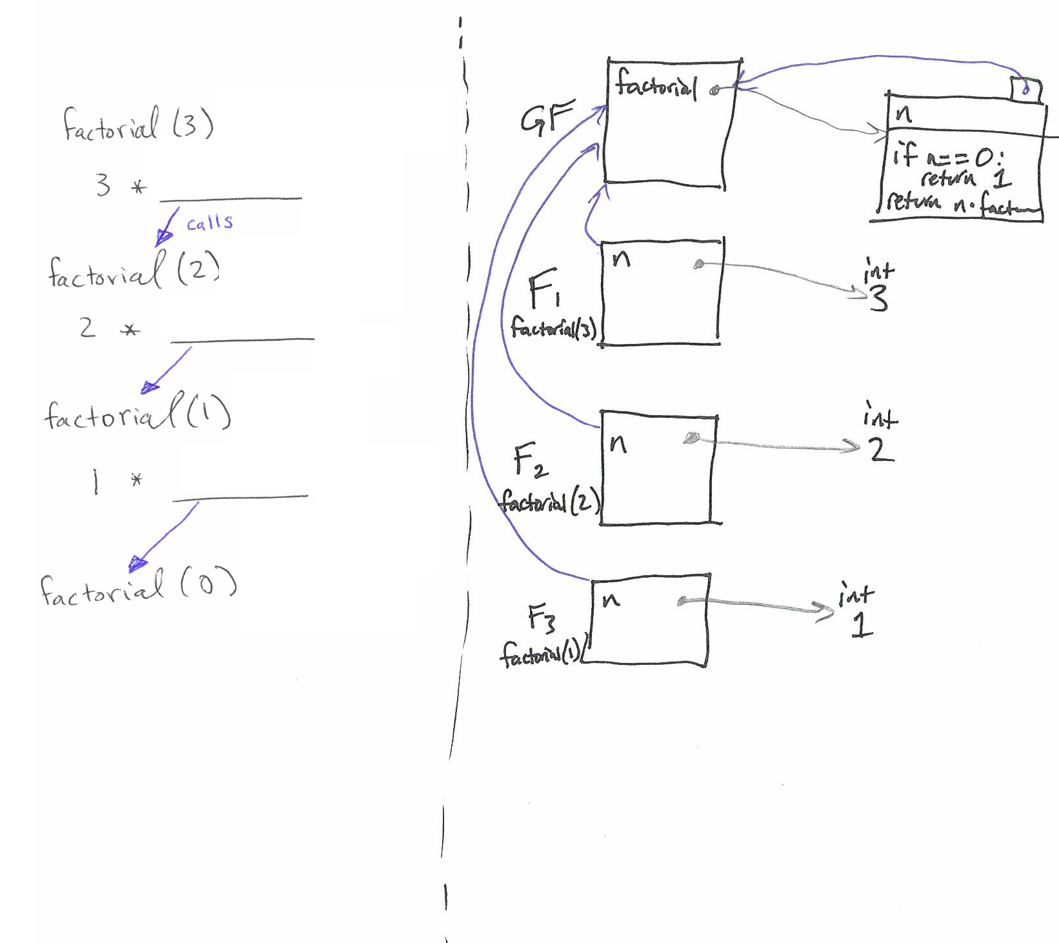 factorial (3)
3 * ____
calls
factorial (2)
2 * ____
factorial (1)
1 * ____
factorial (0)
GF
factorial
n
if n==0:
return 1
return n·factorial
F1
factorial(3)
n
int
3
F2
factorial(2)
n
int
2
F3
factorial(1)
n
int
1